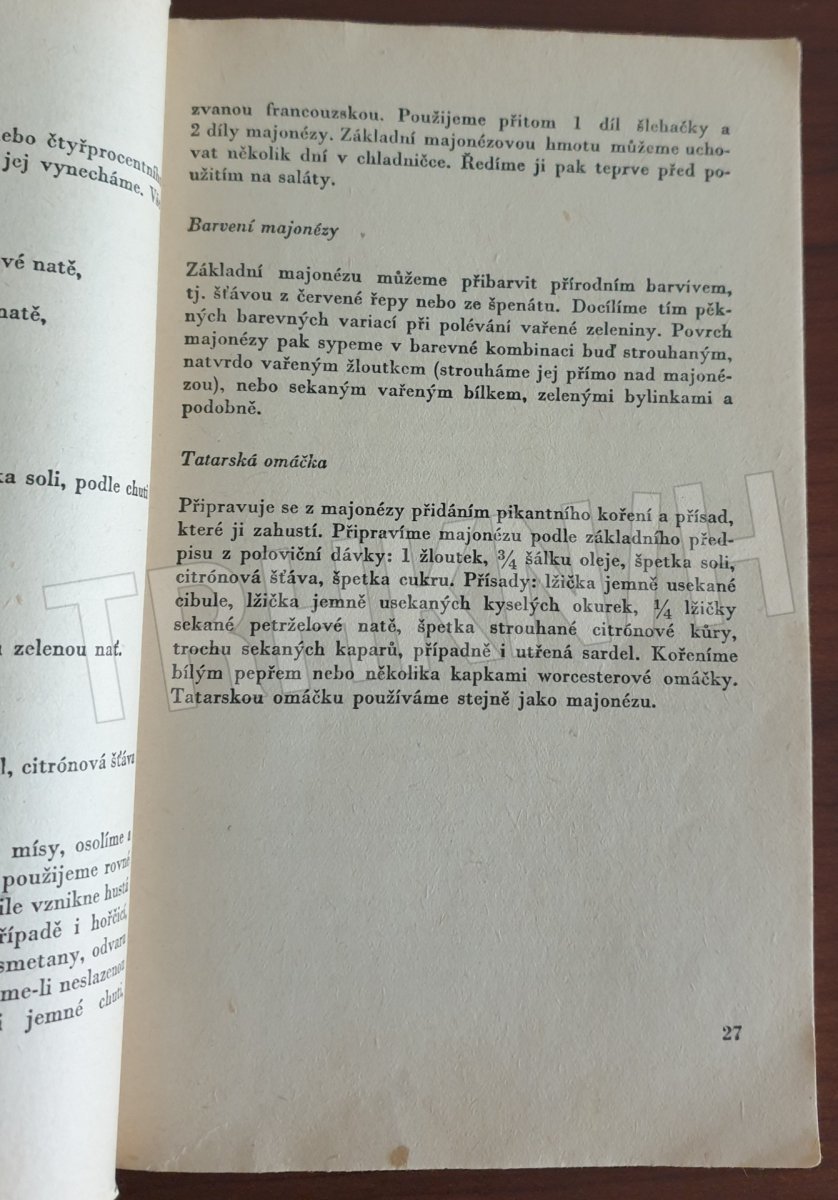 ebo čtyřprocentního
jej vynecháme.
vé natě,
natě,
ka soli, podle chuti
zelenou nať.
l, citrónová šťáva
mísy, osolíme a
použijeme rovné
íle vznikne hustá
řípadě i hořčicí,
smetany, odvaru
me-li neslazenou
í jemné chuti,
zvanou francouzskou. Použijeme přitom 1 díl šlehačky a
2 díly majonézy. Základní majonézovou hmotu můžeme ucho-
vat několik dní v chladničce. Ředíme ji pak teprve před po-
užitím na saláty.
Barvení majonézy
Základní majonézu můžeme přibarvit přírodním barvivem,
tj. šťávou z červené řepy nebo ze špenátu. Docílíme tím pěk-
ných barevných variací při polévání vařené zeleniny. Povrch
majonézy pak sypeme v barevné kombinaci buď strouhaným,
natvrdo vařeným žloutkem (strouháme jej přímo nad majoné-
zou), nebo sekaným vařeným bílkem, zelenými bylinkami a
podobně.
Tatarská omáčka
Připravuje se z majonézy přidáním pikantního koření a přísad,
které ji zahustí. Připravíme majonézu podle základního před-
pisu z poloviční dávky: 1 žloutek, 3/4 šálku oleje, špetka soli,
citrónová šťáva, špetka cukru. Přísady: lžička jemně usekané
cibule, lžička jemně usekaných kyselých okurek, 1/4 lžičky
sekané petrželové natě, špetka strouhané citrónové kůry,
trochu sekaných kaparů, případně i utřená sardel. Kořeníme
bílým pepřem nebo několika kapkami worcesterové omáčky.
Tatarskou omáčku používáme stejně jako majonézu.
27